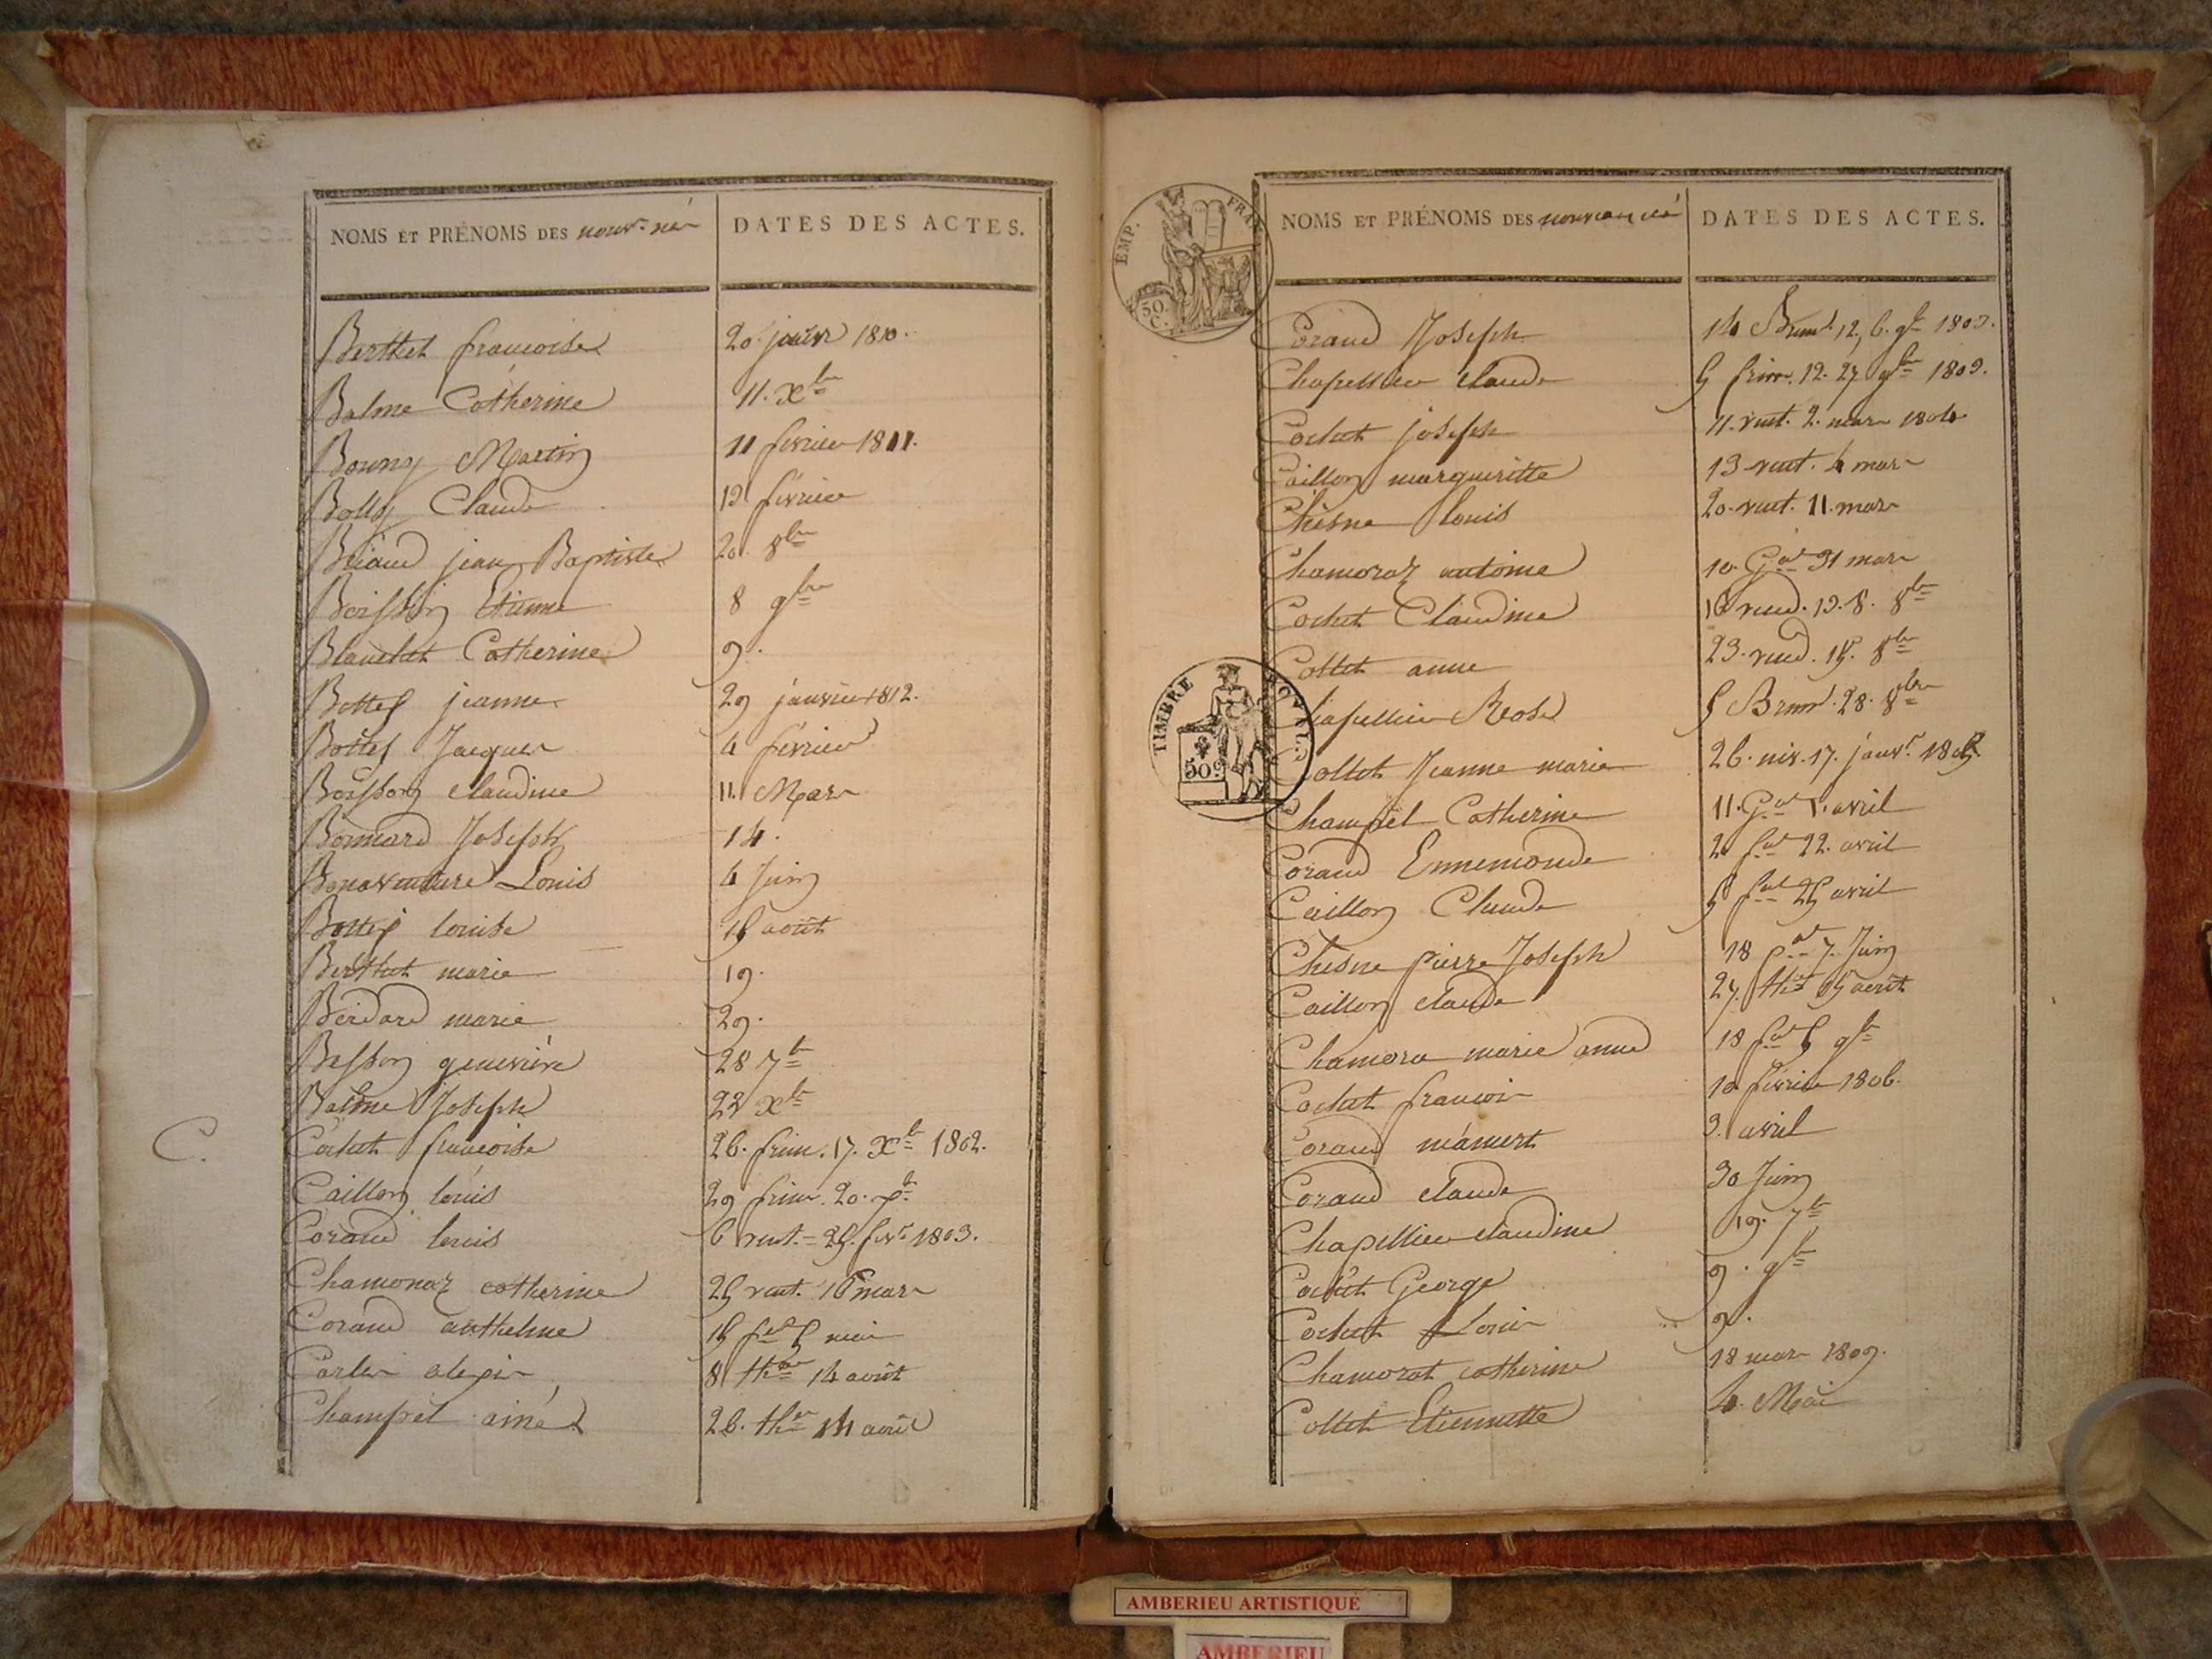 NOMS ET PRÉNOMS DES nouv. né
DATES DES ACTES.
Berthet francoise 20. janvr 1810.
Balme Catherine 11. Xbre
Bouny Martin 11 fevrier 1811.
Bolly Claude 19 fevrier
Briand jean Baptiste 20. 8bre
Boisson Etienne 8 9bre
Blanchet Catherine 9.
Bottex jeanne 29 janvier 1812.
Bottex Jacques 4 février
Boisson claudine 11. Mars
Bonnard Joseph 14.
Bonaventure Louis 4 Juin
Bottex louise 15 août
Berthet marie 19.
Berdard marie 29.
Besson genevieve 28 7bre
Balme Joseph 22 Xbre
C.
Cochet francoise 26. frim. 17. Xbre 1802.
Caillon louis 29 frim. 20.
Corand louis 6 vent. 25. fevr 1803.
Chamonaz catherine 25 vent. 16 mars
Corand anthelme 15 mai
8 ther 14 août
Champel aimé 26. ther 14 août
EMP. FRAN
50. C.
NOMS ET PRÉNOMS DES nouveau né
DATES DES ACTES.
Corand Joseph 14 Brum. 12, 6. 9bre 1803.
Chapellier claude 5 frim. 12. 27 9bre 1803.
Cochet joseph 11. vent. 2. mars 1804
Caillon margueritte 13 vent. 4 mars
Chêsne louis 20. vent. 11. mars
Chamoraz antoine 10. Gal 31 mars
Cochet Claudine 16 vend. 13. 8. 8bre
Collet anne 23. vend. 15. 8bre
TIMBRE ROYAL
50c
Chapellier Rose 5 Brum. 28. 8bre
Collet Jeanne marie 26. niv. 17. janvr 1805
Champel Catherine 11. Gal 1. avril
Corand Ennemonde 2 fal 22. avril
Caillon Claude 5 fal 25 avril
Chêsne pierre Joseph 18 pal 7. Juin
Caillon claude 27. ther 15 août
Chamora marie anne 18 9bre
Cochet francois 10 février 1806.
Corand mamert 3. avril
Corand claude 30 Juin
Chapellier claudine 19. 7bre
Cochet George 9. 9bre
Cochet Louis 9.
Chamorat catherine 18 mars 1809.
Collet Etiennette 4. Mai
AMBERIEU ARTISTIQUE
AMBERIEU